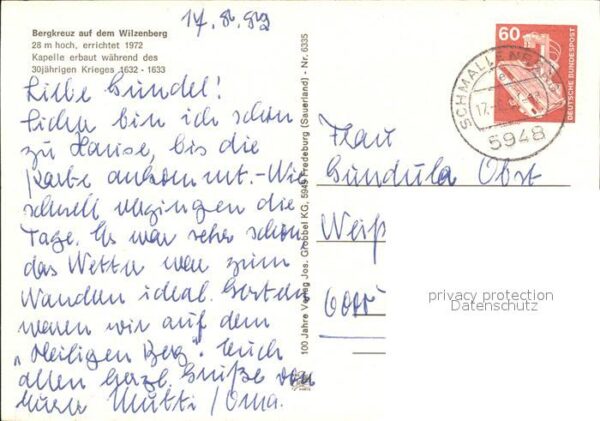 Bergkreuz auf dem Wilzenberg
28 m hoch, errichtet 1972
Kapelle erbaut während des
30jährigen Krieges 1632 - 1633
Liebe Gundel!
Sicher bin ich schon
zu Hause, bis die
Karte ankommt. - Wie
schnell vergingen die
Tage. Es war sehr schön
das Wetter war zum
Wandern ideal. Gestern
waren wir auf dem
„Heiligen Berg". Euch
allen herzl. Grüße von
Eurer Mutti / Oma.
100 Jahre Verlag Jos. Grobbel KG, 5949 Fredeburg (Sauerland) - Nr. 6335
60
DEUTSCHE BUNDESPOST
SCHMALLENBERG
5948
Frau
Gundula Obst
Weiß
privacy protection
Datenschutz